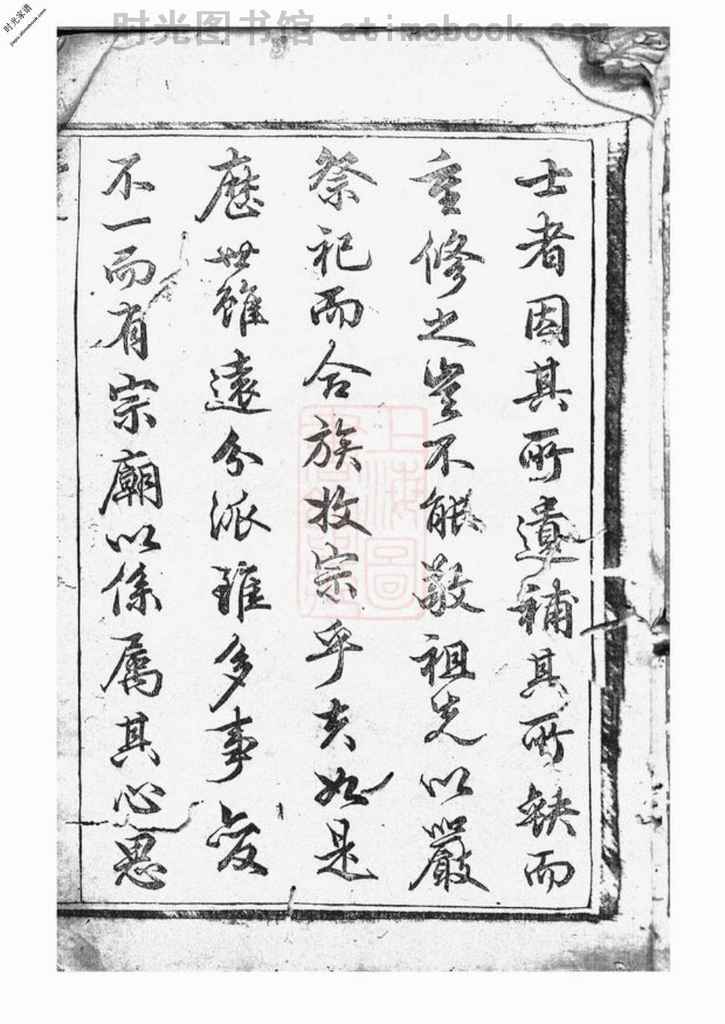 时光家谱
jiapu.atimebook.com
时光图书馆 atimebook.com
士者因其所遺補其所缺而
重修之豈不能敬祖先以嚴
祭祀而合族收宗乎夫如是
歷世雖遠分派雖多事變
不一而有宗廟以係属其心思
上海圖